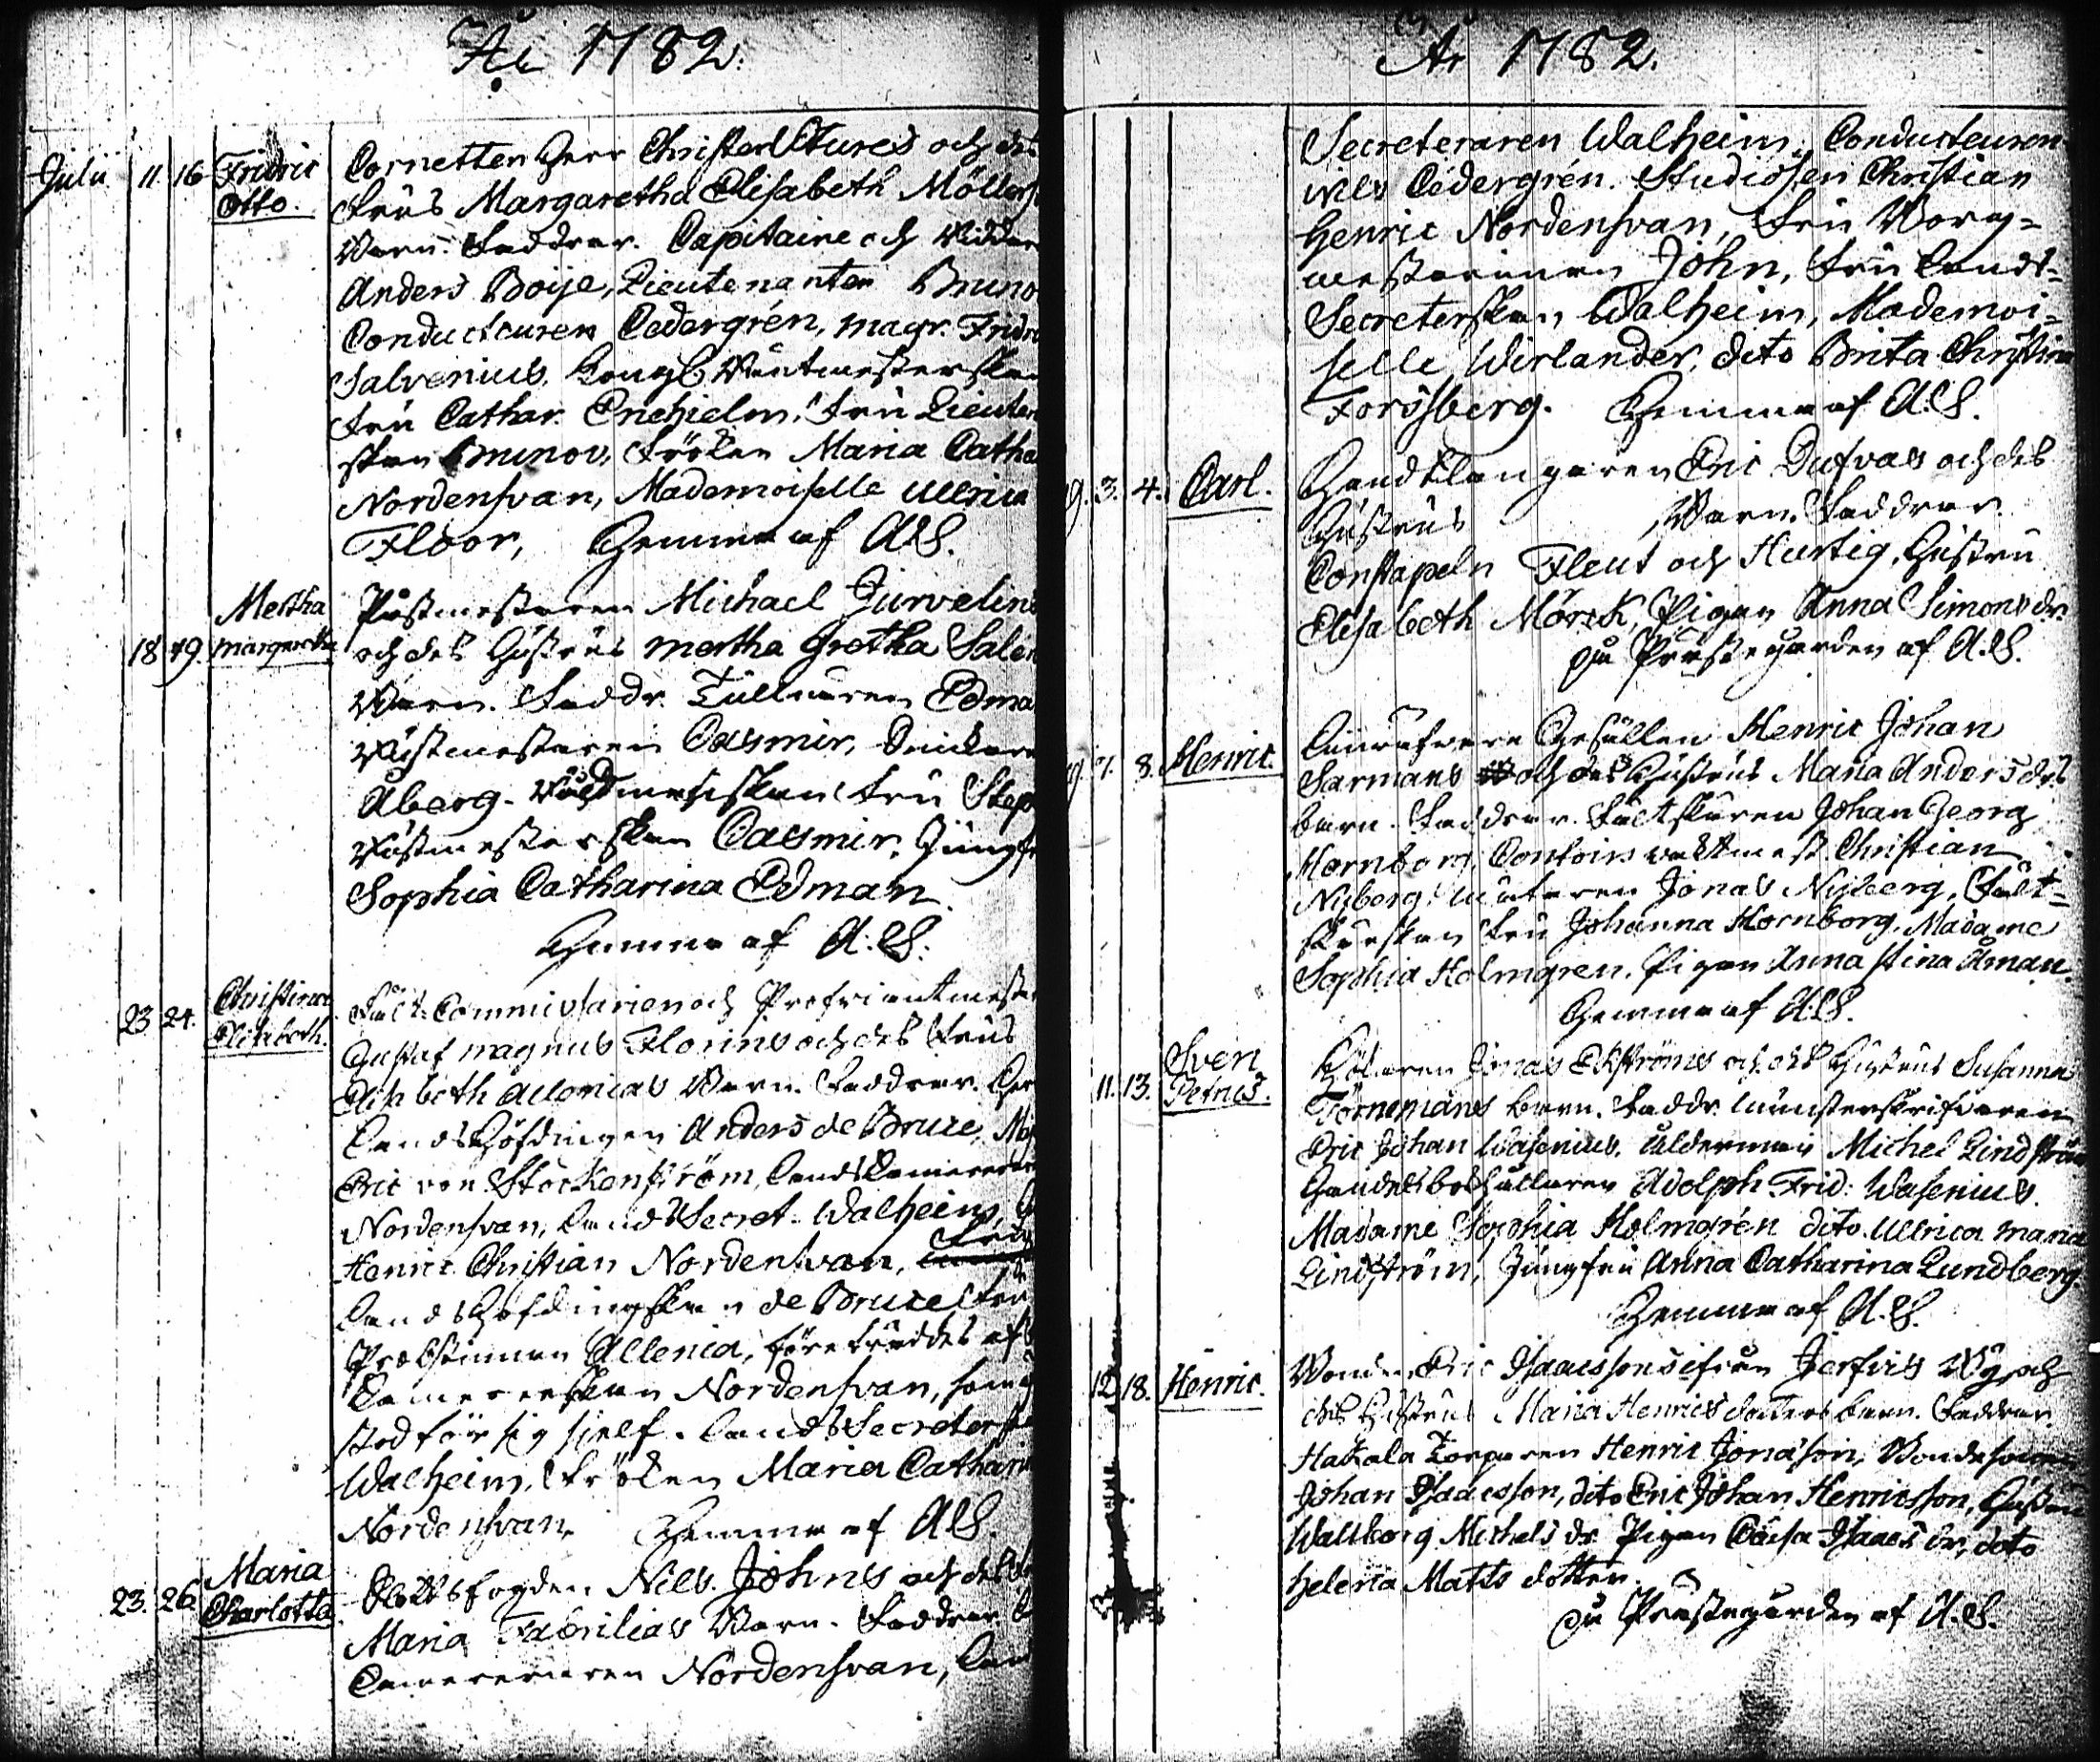 År 1782.
Julii 11. 16 Fridric Otto.
Cornetten Herr Christer Stures och des
Frus Margaretha Elisabeth Möllers
Barn. Faddrar. Capitaine och Riddar
Anders Boije, Lieutenanten Bruno
Conducteuren Cedergrén, magr. Fridr
Salvenius, Kongl. Räntmesterskan
Fru Cathar. Enehielm, Fru Lieuten
skan Brunov, Fröken Maria Catha
Nordensvan, Mademoiselle Ullrica
Floor, Hemma af A.S.
18 19. Mertha margaretha
Postmestaren Michael Jurvelins
och des Hustrus mertha Gretha Salen
Barn. Faddr. Tullnären Edma
Casmir,
Åberg. Fru Step
Casmir, Jungfr
Sophia Catharina Edman.
Hemma af A.S.
23 24. Christina Elisabeth.
Fält-Commissarien och Profviantmest
Gustaf magnus Florins och des Frus
Elisabeth Allenias Barn. Faddrar. Her
Landshöfdingen Anders de Bruce, Maj
Eric von Stockenström, Landskamereraren
Nordensvan, Lands Secret. Walheim,
Henric Christian Nordensvan, Fru
Landshöfdingskan de Bruce, Fru
Probstinnan Allenia, företräddes af
Camererskan Nordensvan, som
stod för sig sjelf. Lands Secreterska
Walheim, Fröken Maria Cathari
Nordensvan, Hemma af A.S.
23. 26. Maria Charlotta
Slottsfogden Nils Johns och des
Maria Fabrilias Barn. Faddrar.
Camereraren Nordensvan, Lan
År 1782.
Secreteraren Walheim, Conducteuren
Nils Cedergrén. Studiosen Christian
Henric Nordensvan, Fru Borg-
mesterinnan John, Fru Landt-
Secreterskan Walheim, Mademoi-
selle Wirlander, dito Brita Christina
Forssberg. Hemma af A.S.
9. 3. 4. Carl.
Handtlangaren Eric Dufvas och des
Hustrus Barn. Faddrar.
Constapeln Fleut och Hurtig, Hustru
Elisabeth Mörck, Pigan Anna Simons dr.
På Prästegården af A.S.
9. 7. 8. Henric
Linväfvare Gesällen Henric Johan
Sarmans och des Hustrus Maria Anders drs
barn. Faddrar. Fältskären Johan Georg
Hornborg, Contoirs vaktmest. Christian
Nyberg, Jonas Nyberg, Fält-
skärskan Fru Johanna Hornborg, Madame
Sophia Holmgren, Pigan Anna Stina Åman.
Hemma af A.S.
11. 13. Sven Petrus.
Jonas Ekströms och des Hustrus Susanna
Törnemans barn. Faddr. Mönsterskrifvaren
Eric Johan Wasenius, Ålderman Michel Lindström
Handelsbokhållaren Adolph Frid. Wasenius.
Madame Sophia Holmgrén dito Ullrica maria
Lindström, Jungfru Anna Catharina Lundberg
Hemma af A.S.
12. 18. Henric.
Bonden Eric Isaacssons ifrån Jerfvis By, och
des Hustrus Maria Henrics dotters barn. Faddrar.
Hakala Torparen Henric Jonasson, Bondesonen
Johan Isaacsson, dito Eric Johan Henricsson, Hustru
Wallborg Michels dr. Pigan Caisa Isaacs dr, dito
Helena Matts dotter.
På Prästegården af A.S.